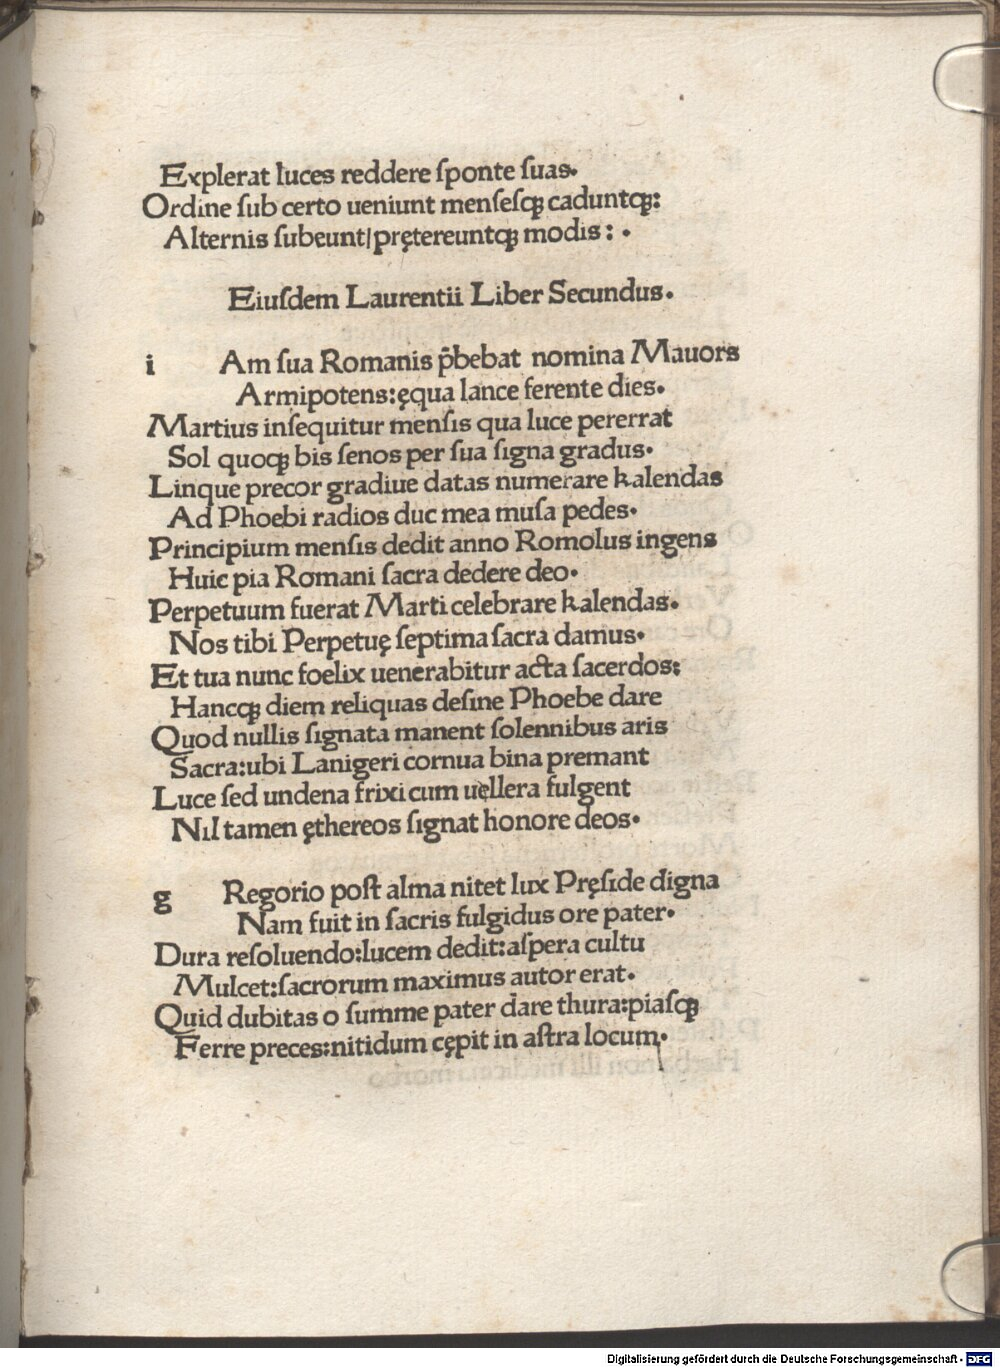 Explerat luces reddere ſponte ſuas.
Ordine ſub certo ueniunt menſeſqꝫ caduntqꝫ:
Alternis ſubeunt|prętereuntqꝫ modis: .
Eiuſdem Laurentii Liber Secundus.
i Am ſua Romanis p̄bebat nomina Mauors
Armipotens:ęqua lance ferente dies.
Martius inſequitur menſis qua luce pererrat
Sol quoqꝫ bis ſenos per ſua ſigna gradus.
Linque precor gradiue datas numerare kalendas
Ad Phoebi radios duc mea muſa pedes.
Principium menſis dedit anno Romolus ingens
Huic pia Romani ſacra dedere deo.
Perpetuum fuerat Marti celebrare kalendas.
Nos tibi Perpetuę ſeptima ſacra damus.
Et tua nunc foelix uenerabitur acta ſacerdos:
Hancqꝫ diem reliquas deſine Phoebe dare
Quod nullis ſignata manent ſolennibus aris
Sacra:ubi Lanigeri cornua bina premant
Luce ſed undena frixi cum uęllera fulgent
Nil tamen ęthereos ſignat honore deos.
g Regorio poſt alma nitet lux Pręſide digna
Nam fuit in ſacris fulgidus ore pater.
Dura reſoluendo:lucem dedit:aſpera cultu
Mulcet:ſacrorum maximus autor erat.
Quid dubitas o ſumme pater dare thura:piaſqꝫ
Ferre preces:nitidum cępit in aſtra locum.
Digitalisierung gefördert durch die Deutsche Forschungsgemeinschaft - DFG